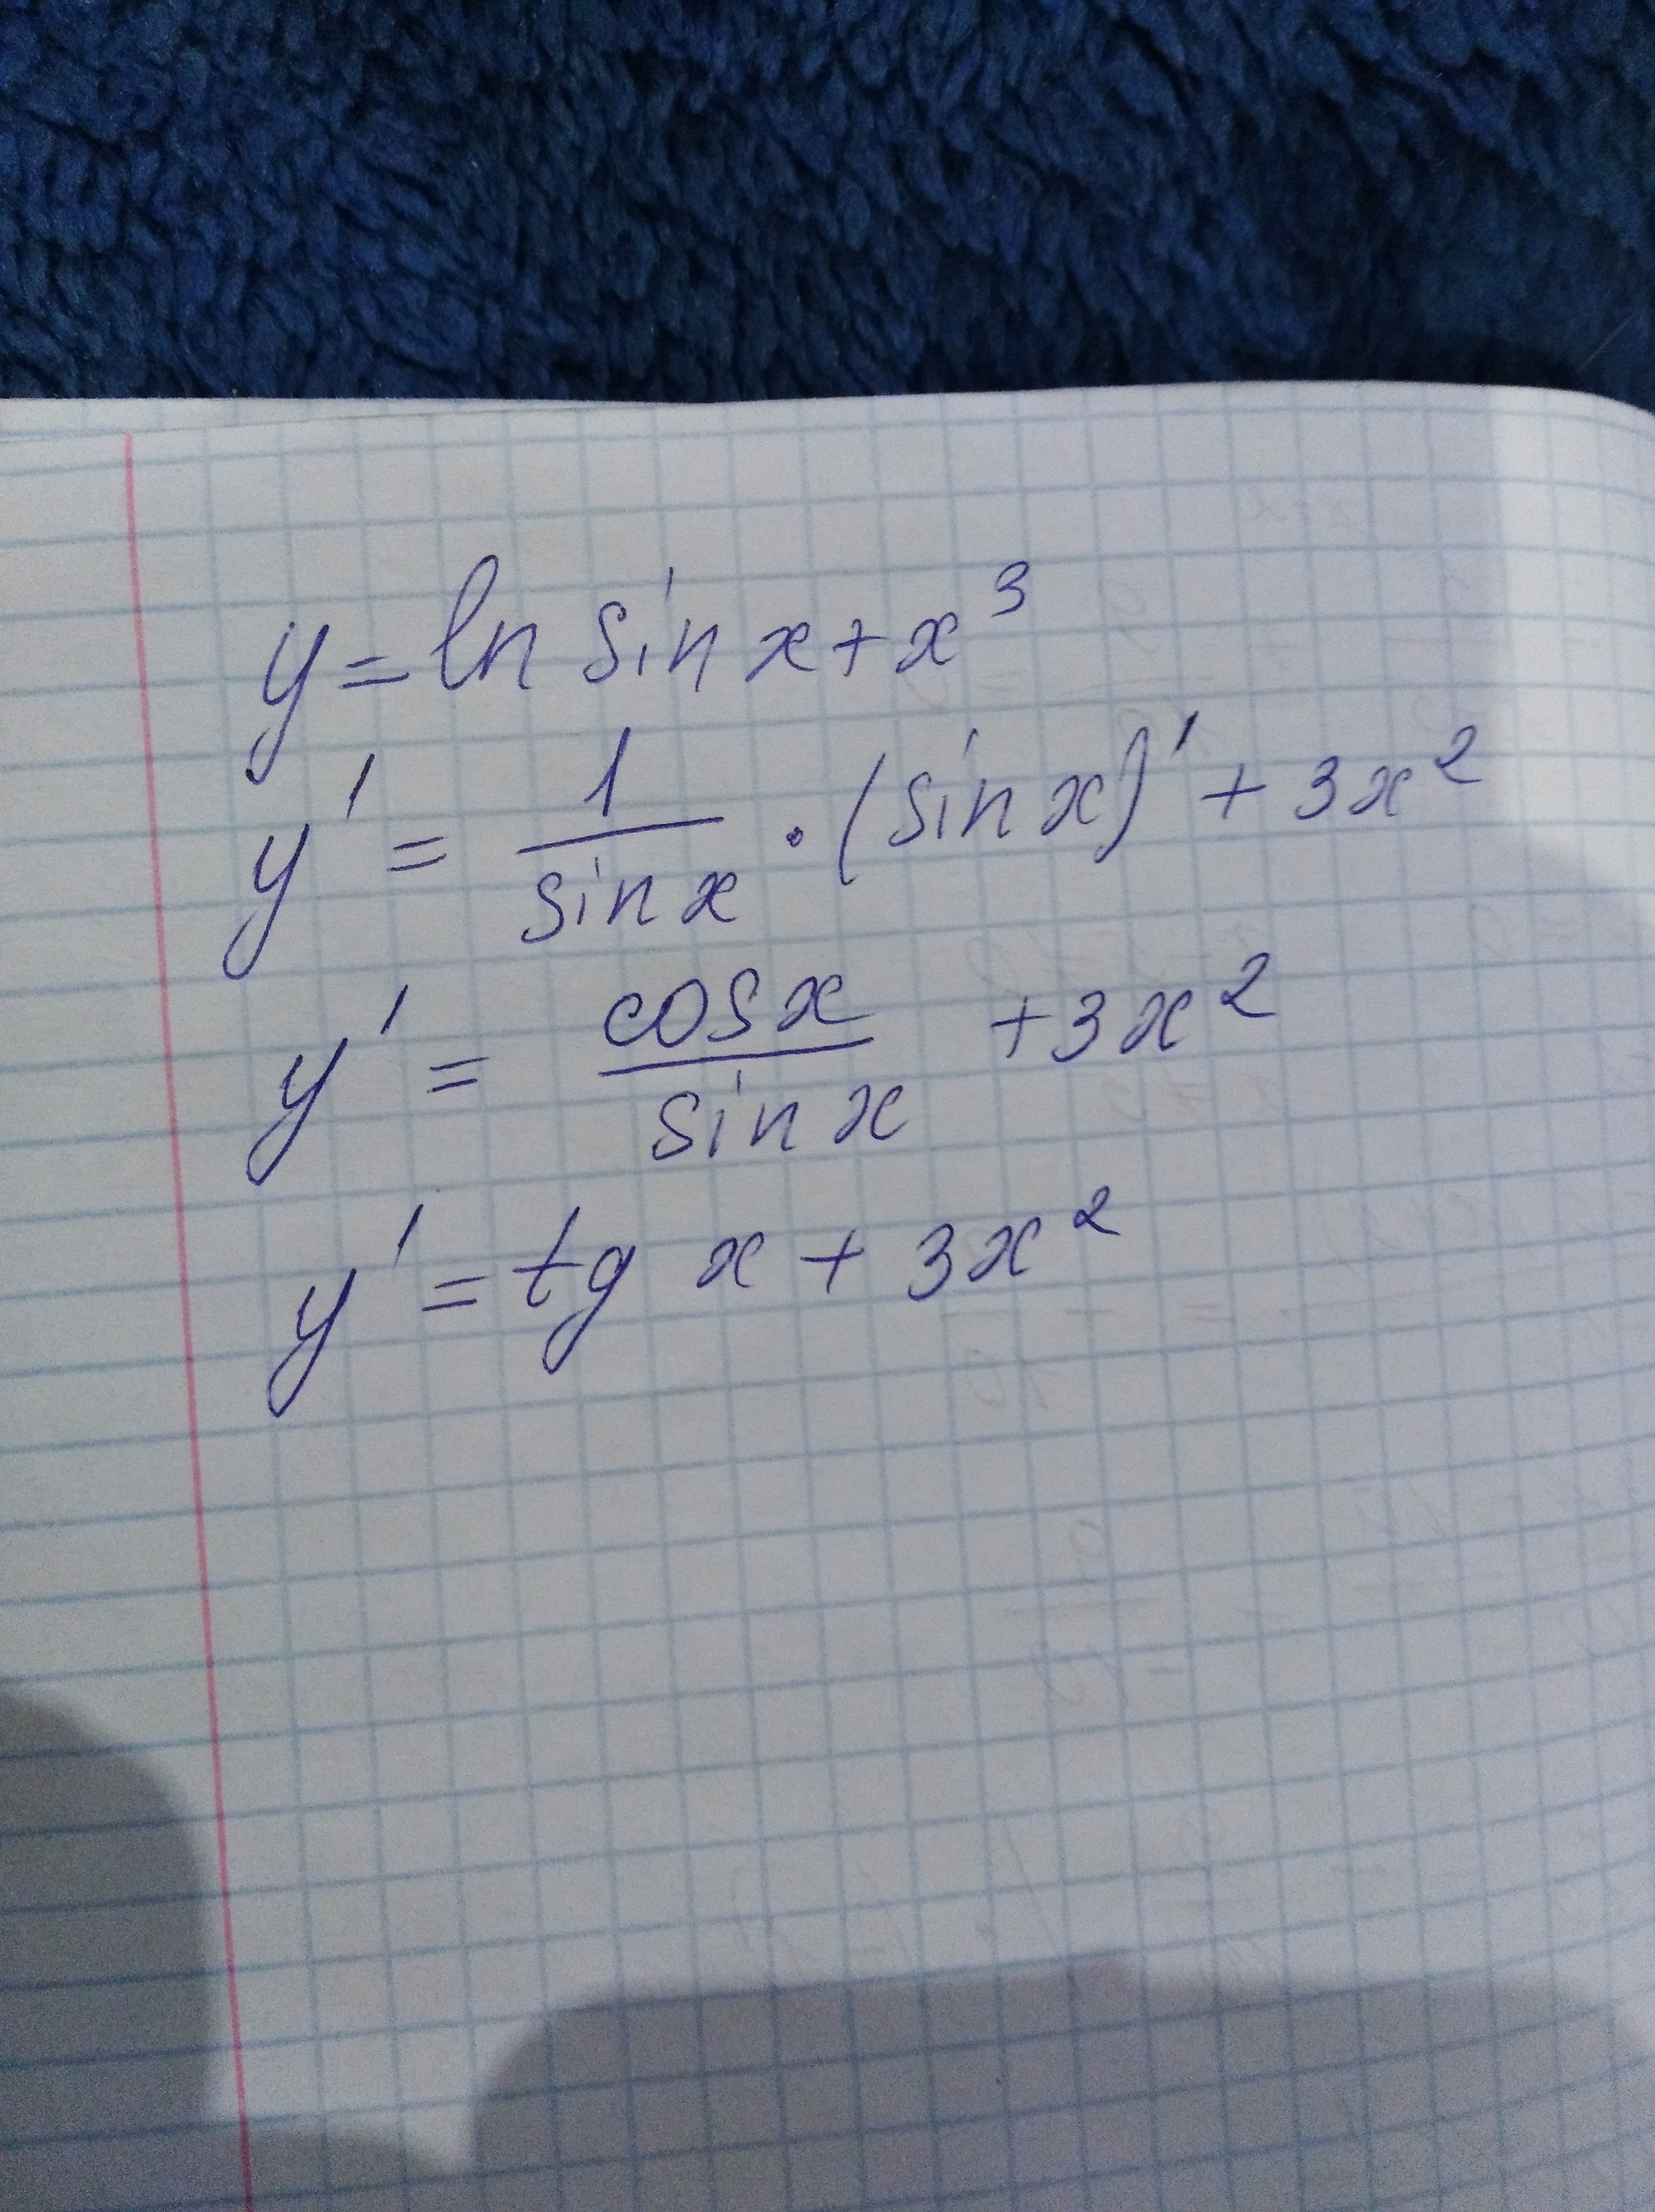 y = ln sin x + x³
y' = 1/sin x · (sin x)' + 3x²
y' = cos x/sin x + 3x²
y' = tg x + 3x²